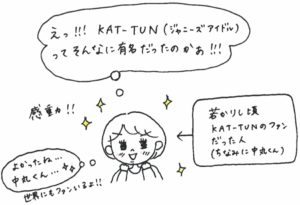 えっ!!! KAT-TUN(ジャニーズアイドル)
ってそんなに有名だったのかぁ!!!
感動!!
若かりし頃
KAT-TUNのファン
だった人
(ちなみに中丸くん)
よかったね…
中丸くん…
世界にもファンいるよ!!